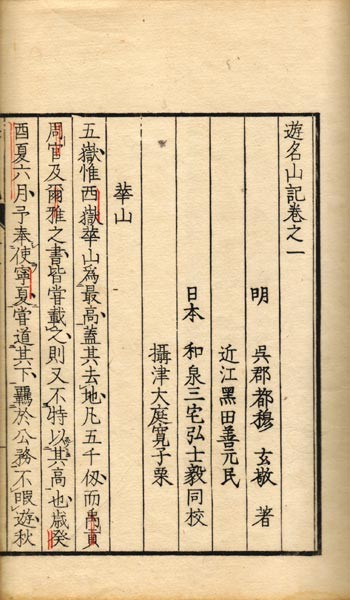 遊名山記卷之一
明 呉郡都穆 玄敬 著
近江黑田善元民
日本 和泉三宅弘士毅同校
攝津大庭寬子栗
華山
五嶽惟西嶽華山爲最高蓋其去地凡五千仭而禹貢
周官及爾雅之書皆嘗載之則又不特以其高也歳癸
酉夏六月予奉使寧夏嘗道其下羈於公務不暇遊秋